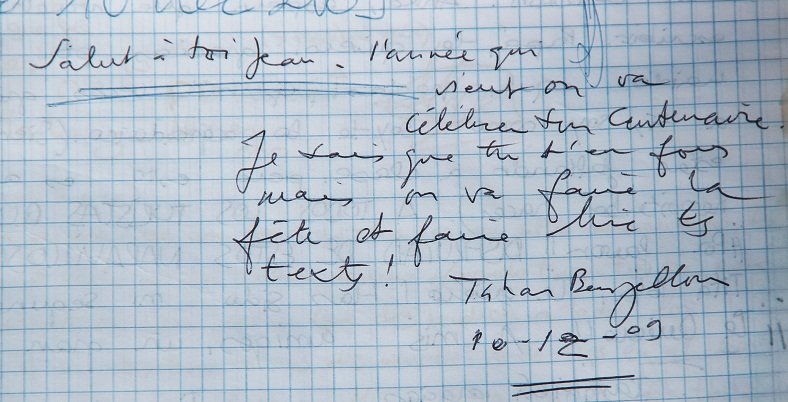 10 dec 2009
Salut à toi Jean. l'année qui
vient on va
célébrer ton Centenaire.
Je sais que tu t'en fous
mais on va faire la
fête et faire lire tes
textes !
Tahar Ben Jelloun
10-12-09